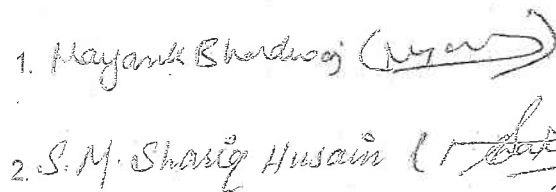 1. Mayank Bhardwaj
2. S.M. Shariq Husain